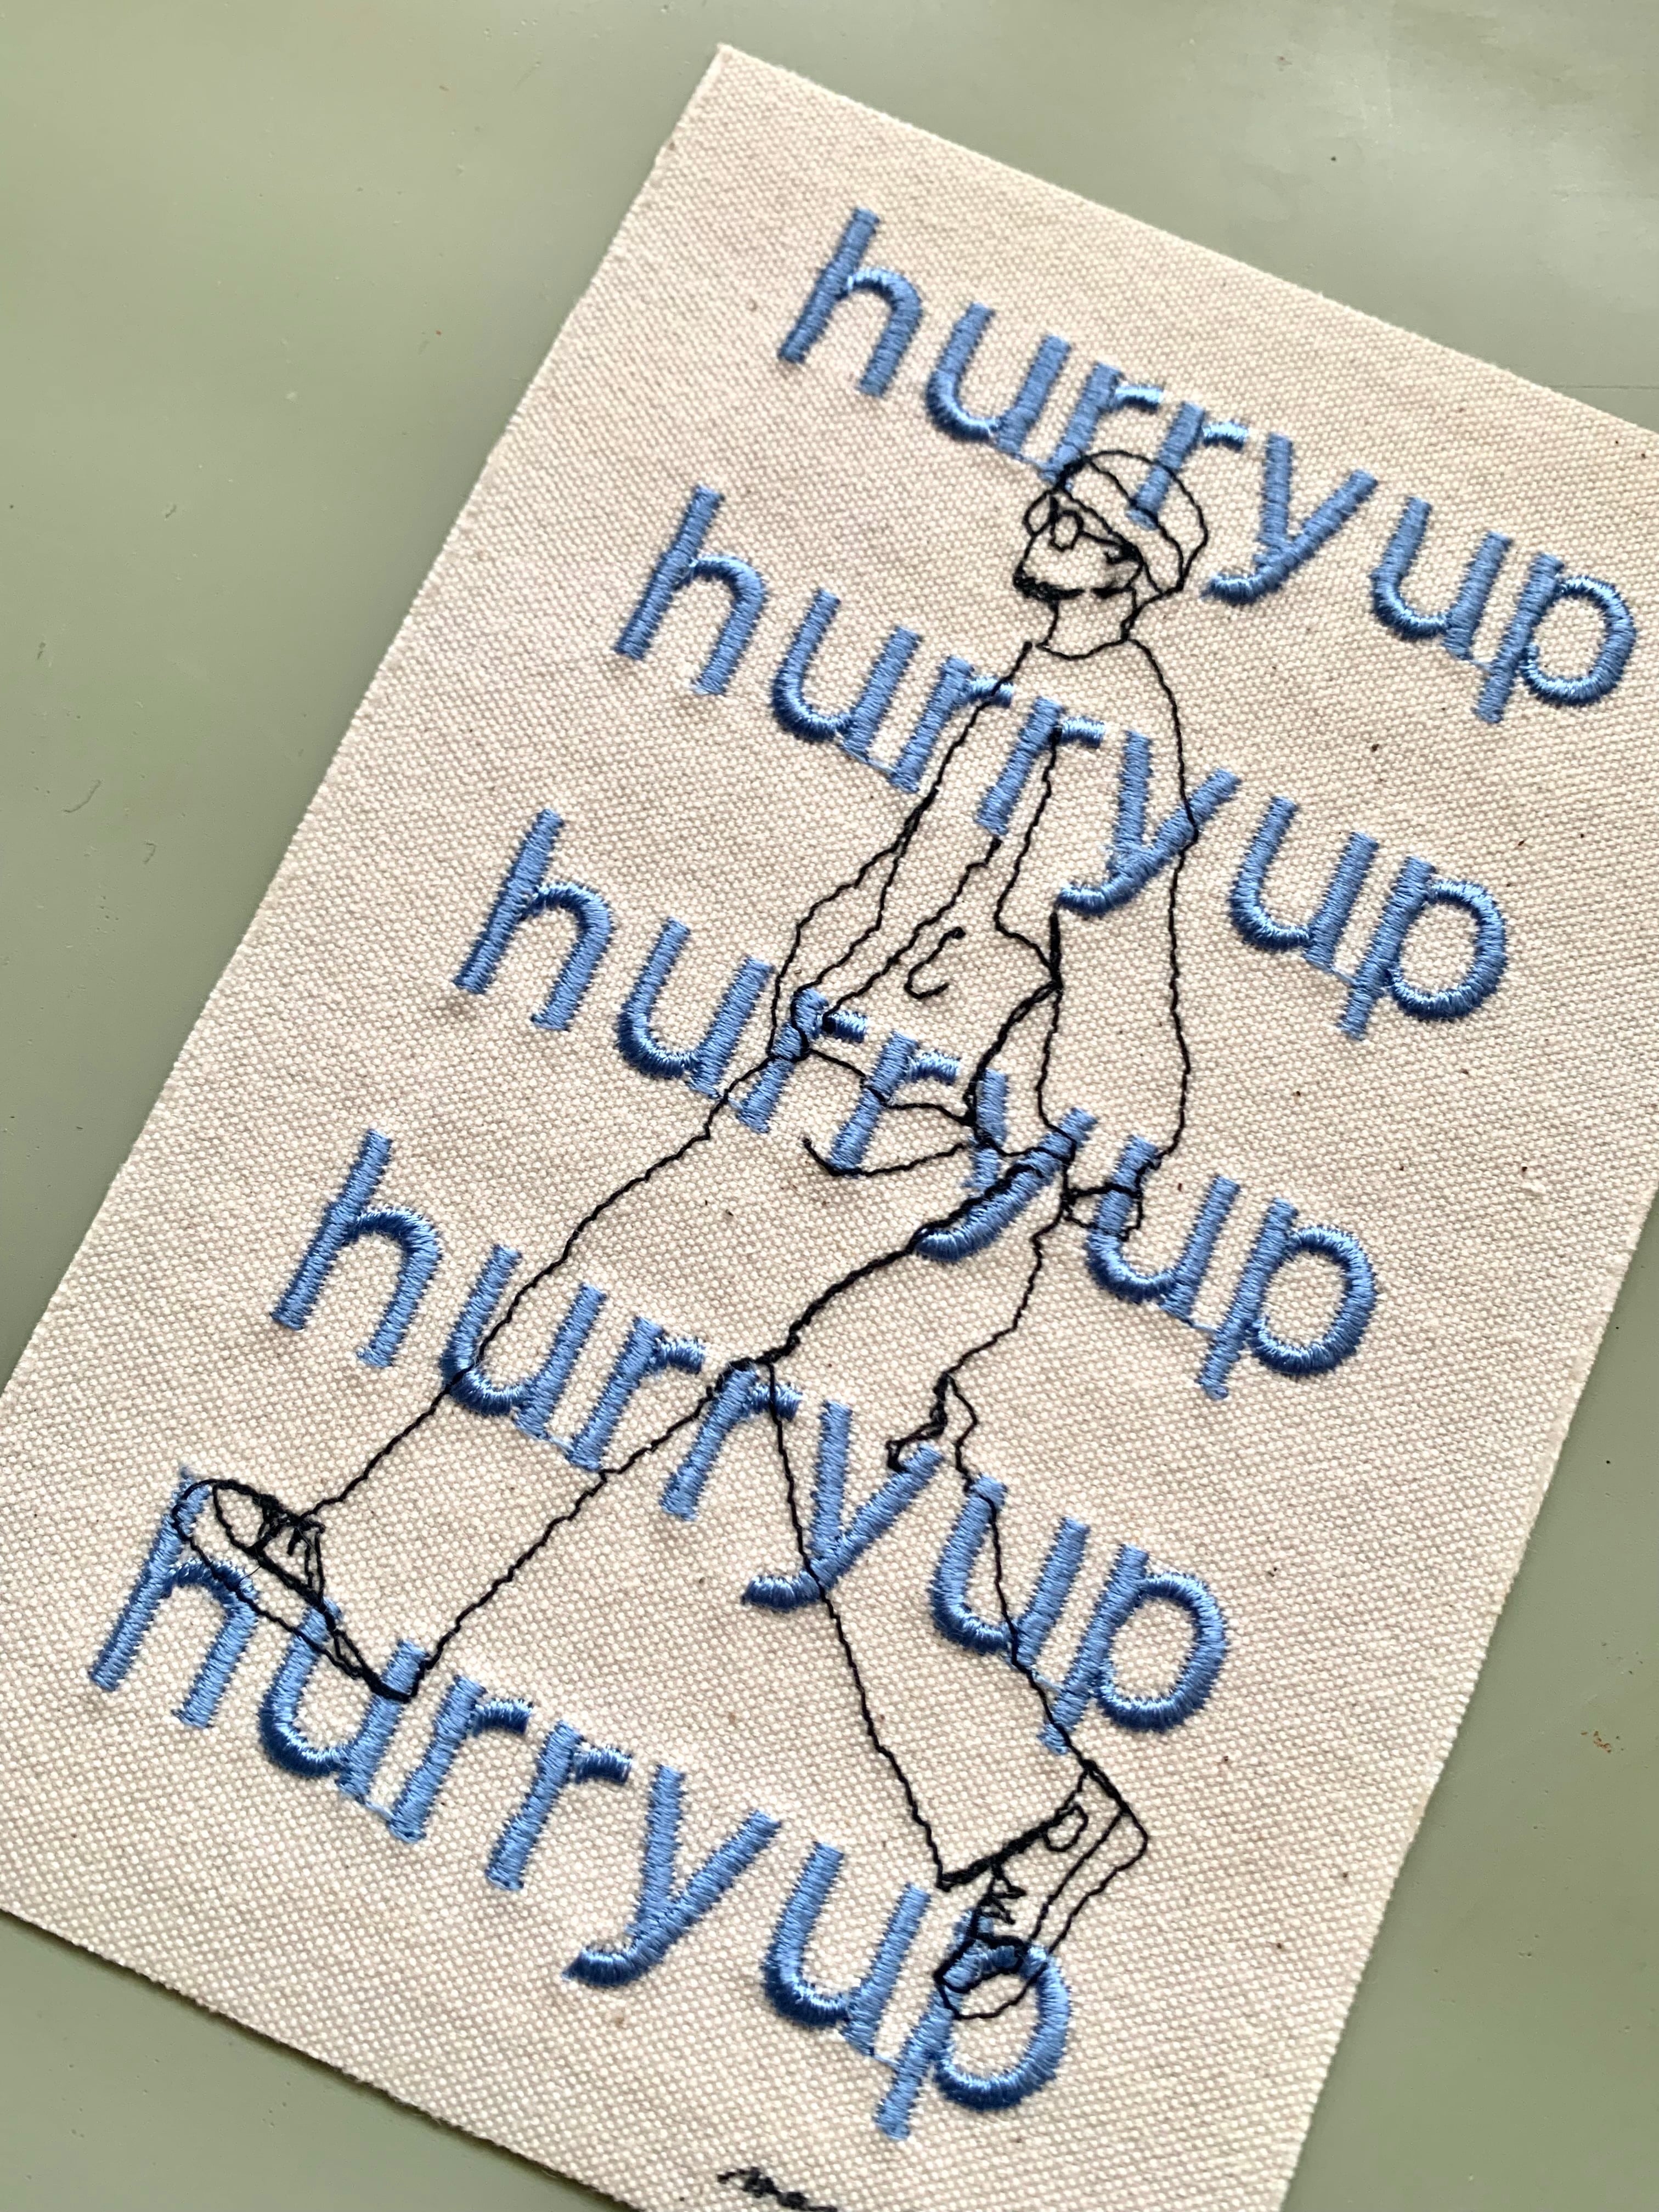 hurry up
hurry up
hurry up
hurry up
hurry up